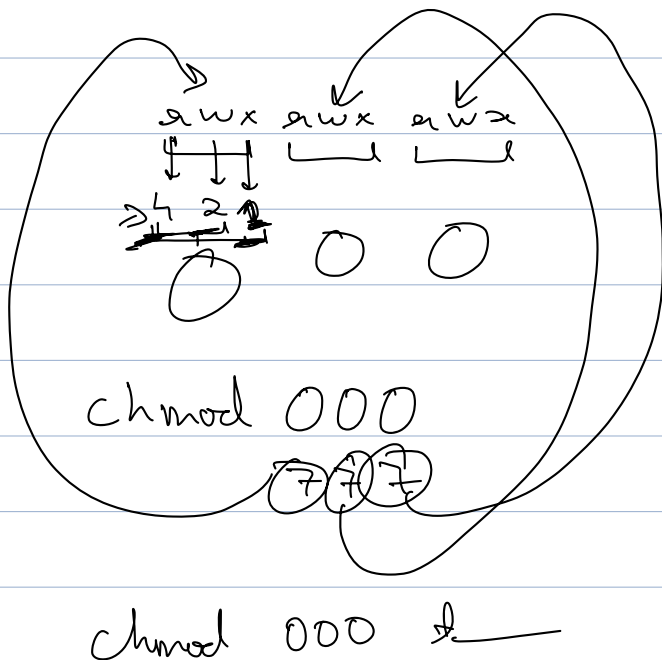 rwx rwx rwx
4 2 1
0 0 0
chmod 000
7 7 7
chmod 000